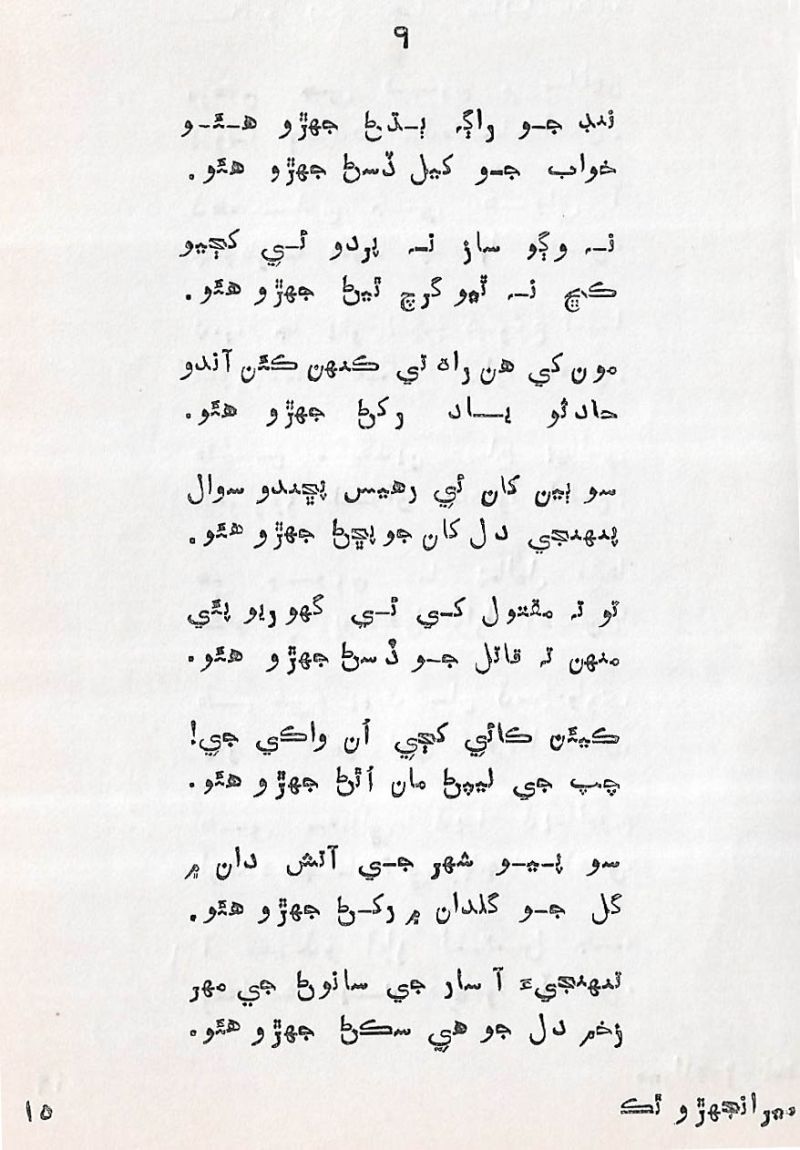 ٩
ننڊ جو راڳ ٻڌڻ جهڙو هئو
خواب جو کيل ڏسڻ جهڙو هئو.
نہ وڳو ساز نہ پردو ئي کڄيو
ڪڇ نہ ٿيو گرچ ٿيڻ جهڙو هئو.
مون کي هن راھ تي ڪنهن ڪٿن آندو
حادثو ياد رکڻ جهڙو هئو.
سو ٻين کان ئي رهيس پڇندو سوال
پنهنجي دل کان جو پڇڻ جهڙو هئو.
تو تہ مقتول کي ئي گهوريو پئي
منهن تہ قاتل جو ڏسڻ جهڙو هئو.
ڪيئن ڪاٿي کڄي اُن واڪي جي!
چپ جي ليپڻ مان اُٿڻ جهڙو هئو.
سو پيو شهر جي آتش دان ۾
گل جو گلدان ۾ رکڻ جهڙو هئو.
تنهنجيءَ آسار جي سانوڻ جي مهر
زخم دل جو هي سڪڻ جهڙو هئو.
انجهڙو ٿڪ
١٥